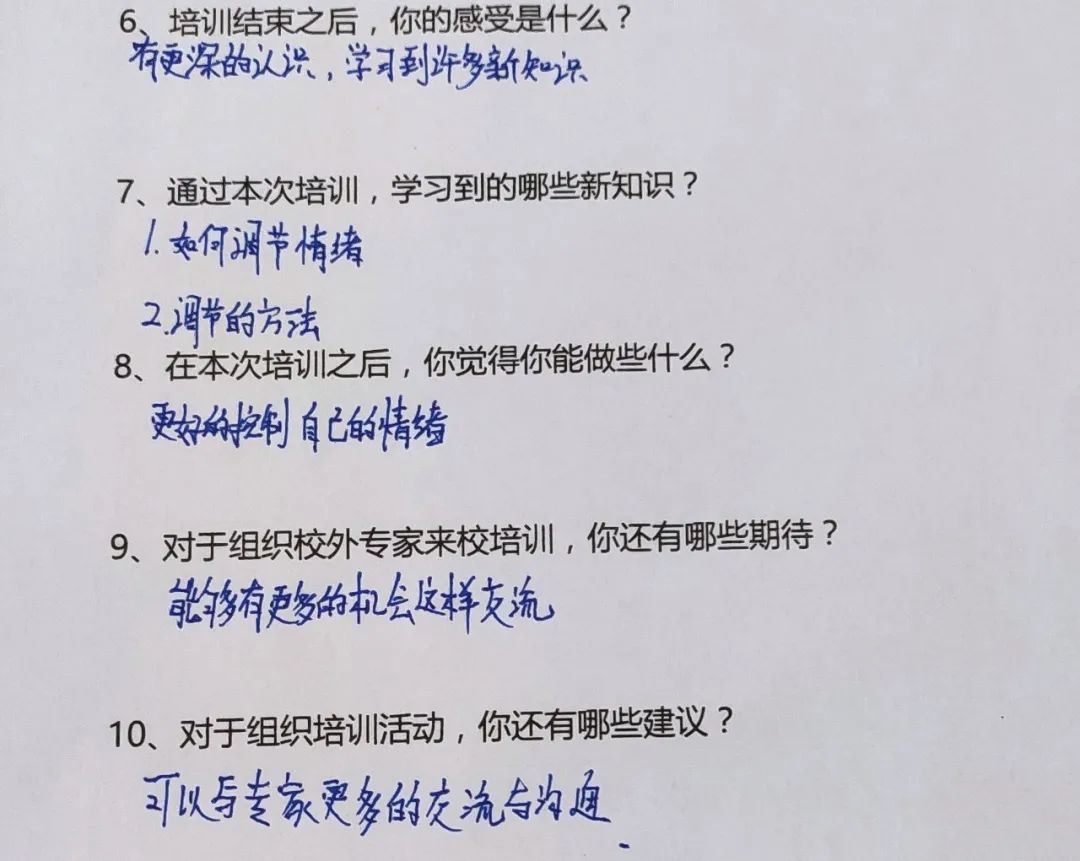 6、培训结束之后，你的感受是什么？
有更深的认识，学习到许多新知识
7、通过本次培训，学习到的哪些新知识？
1.如何调节情绪
2.调节的方法
8、在本次培训之后，你觉得你能做些什么？
更好的控制自己的情绪
9、对于组织校外专家来校培训，你还有哪些期待？
能够多有更多的机会这样交流
10、对于组织培训活动，你还有哪些建议？
可以与专家更多的交流与沟通.